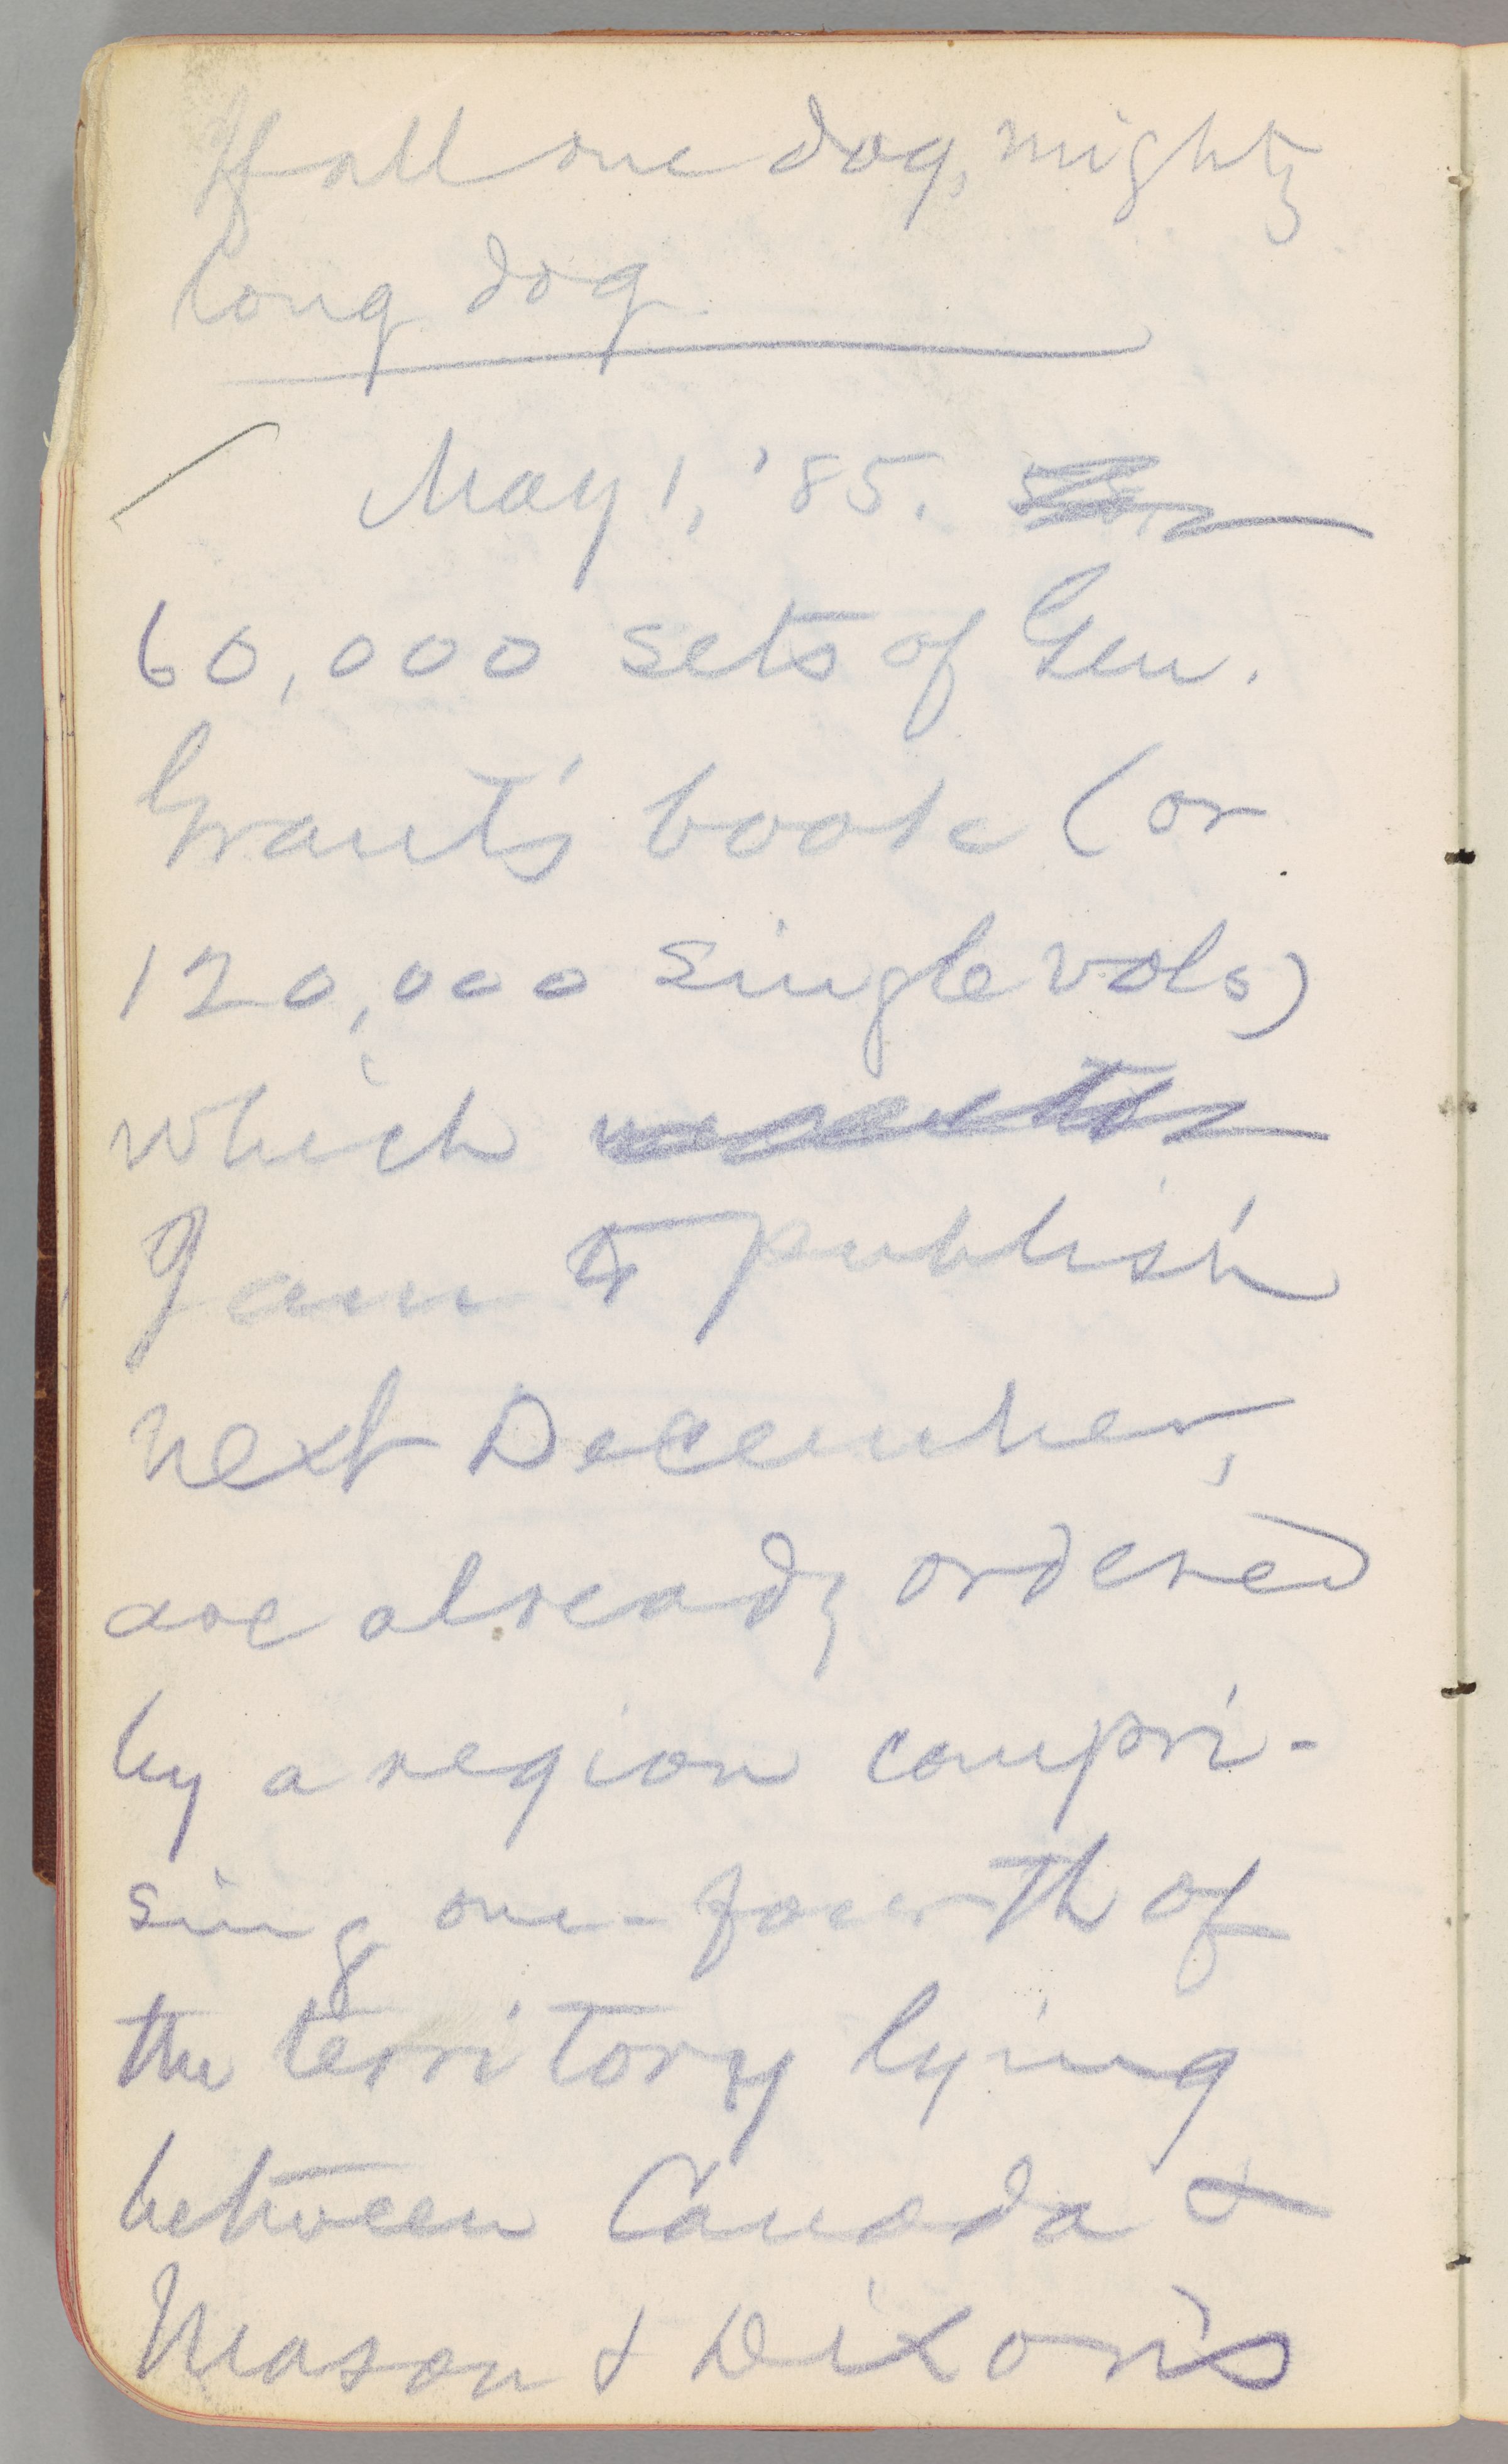 If all one dog, mighty
long dog.
May 1, '85.
60,000 sets of Gen.
Grant's book (or
120,000 single vols)
which
I am to publish
next December,
are already ordered
by a region compri-
sing one-fourth of
the territory lying
between Canada &
Mason & Dixon's